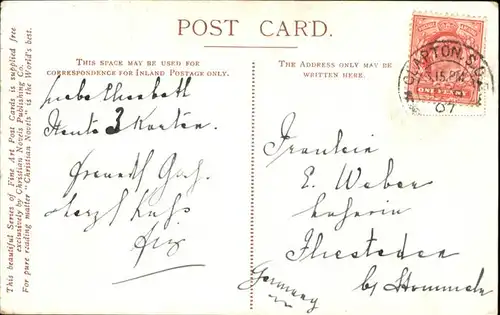 POST CARD.
THIS SPACE MAY BE USED FOR
CORRESPONDENCE FOR INLAND POSTAGE ONLY.
THE ADDRESS ONLY MAY BE
WRITTEN HERE.
This beautiful Series of Fine Art Post Cards is supplied free
exclusively by Christian Novels Publishing Co.
For pure reading matter "Christian Novels" is the World's best.
Liebe Elisabeth
Heute 3 Karten.
Fräulein
E. Weber
Lehrerin
b/ Stommeln
Germany
CLAPTON. S.O.
5.15.PM
07
ONE PENNY